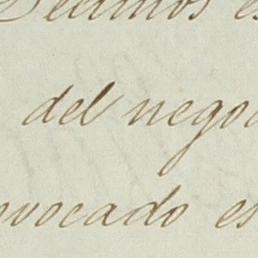 Decimos es
del nego
vocado es